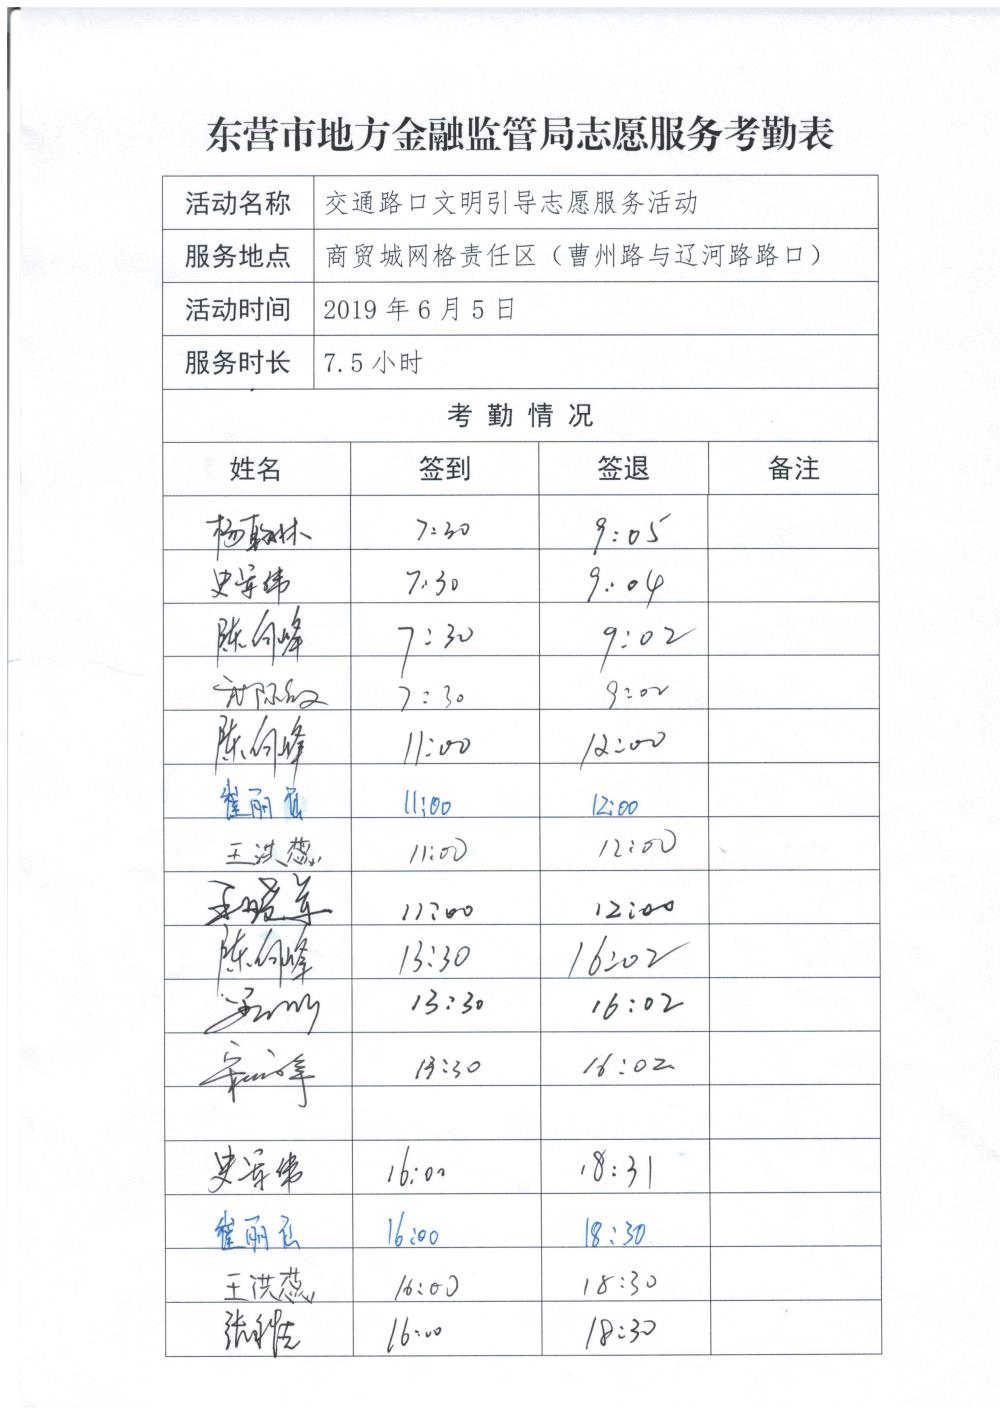 东营市地方金融监管局志愿服务考勤表
活动名称 交通路口文明引导志愿服务活动
服务地点 商贸城网格责任区（曹州路与辽河路路口）
活动时间 2019年6月5日
服务时长 7.5小时
考勤情况
姓名 签到 签退 备注
杨翰林 7:30 9:05
史军伟 7:30 9:04
陈向峰 7:30 9:02
7:30 9:02
陈向峰 11:00 12:00
崔丽 11:00 12:00
王洪蕊 11:00 12:00
王晓军 11:00 12:00
陈向峰 13:30 16:02
13:30 16:02
13:30 16:02
史军伟 16:00 18:31
崔丽 16:00 18:30
王洪蕊 16:00 18:30
张 16:00 18:30